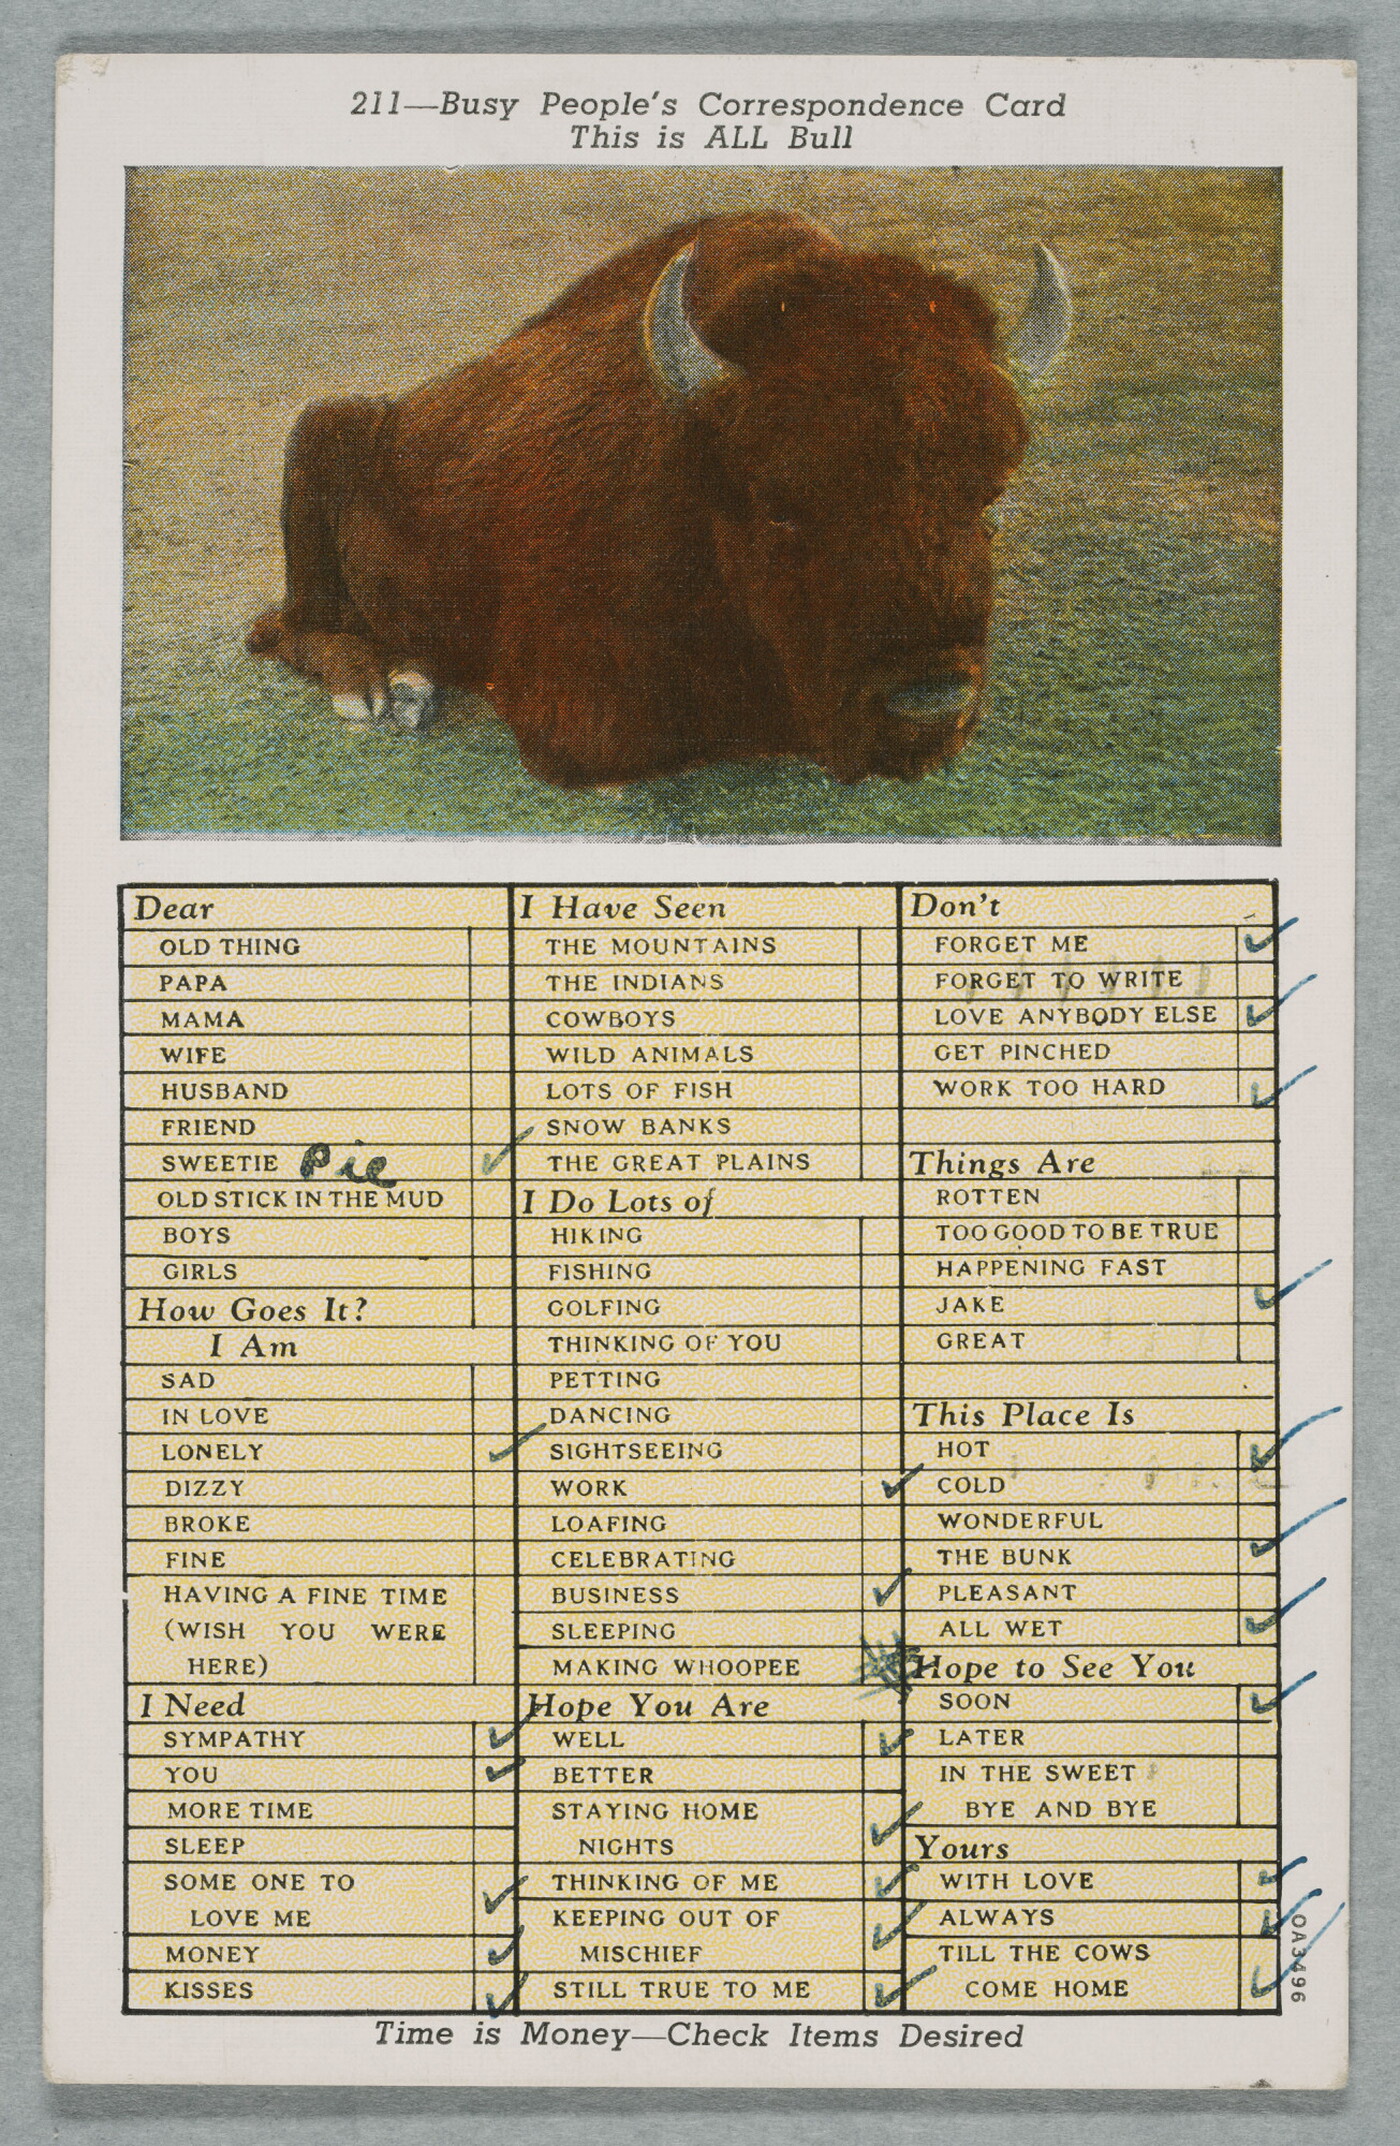 211—Busy People's Correspondence Card
This is ALL Bull
Dear
OLD THING
PAPA
MAMA
WIFE
HUSBAND
FRIEND
SWEETIE Pie ✓
OLD STICK IN THE MUD
BOYS
GIRLS
How Goes It?
I Am
SAD
IN LOVE
LONELY ✓
DIZZY
BROKE
FINE
HAVING A FINE TIME
(WISH YOU WERE
HERE)
I Need
SYMPATHY ✓
YOU ✓
MORE TIME
SLEEP
SOME ONE TO
LOVE ME ✓
MONEY ✓
KISSES ✓
I Have Seen
THE MOUNTAINS
THE INDIANS
COWBOYS
WILD ANIMALS
LOTS OF FISH
SNOW BANKS
THE GREAT PLAINS
I Do Lots of
HIKING
FISHING
GOLFING
THINKING OF YOU
PETTING
DANCING
SIGHTSEEING
WORK ✓
LOAFING
CELEBRATING
BUSINESS ✓
SLEEPING
MAKING WHOOPEE
Hope You Are
WELL ✓
BETTER
STAYING HOME
NIGHTS ✓
THINKING OF ME ✓
KEEPING OUT OF
MISCHIEF ✓
STILL TRUE TO ME ✓
Don't
FORGET ME ✓
FORGET TO WRITE
LOVE ANYBODY ELSE ✓
GET PINCHED
WORK TOO HARD ✓
Things Are
ROTTEN
TOO GOOD TO BE TRUE
HAPPENING FAST
JAKE ✓
GREAT
This Place Is
HOT ✓
COLD
WONDERFUL
THE BUNK ✓
PLEASANT
ALL WET ✓
Hope to See You
SOON ✓
LATER
IN THE SWEET
BYE AND BYE
Yours
WITH LOVE ✓
ALWAYS ✓
TILL THE COWS
COME HOME ✓
OA3496
Time is Money—Check Items Desired